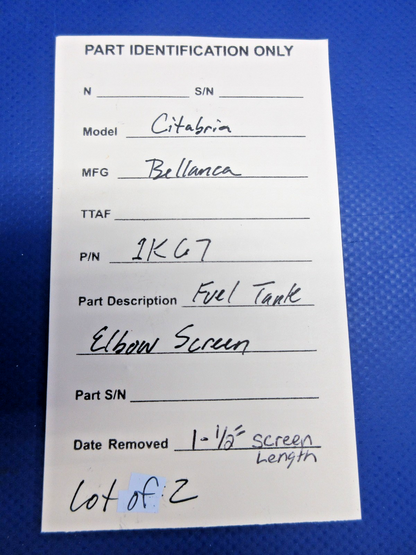 PART IDENTIFICATION ONLY
N S/N
Model Citabria
MFG Bellanca
TTAF
P/N 1K67
Part Description Fuel Tank
Elbow Screen
Part S/N
Date Removed 1-1/2" screen
Length
Lot of 2